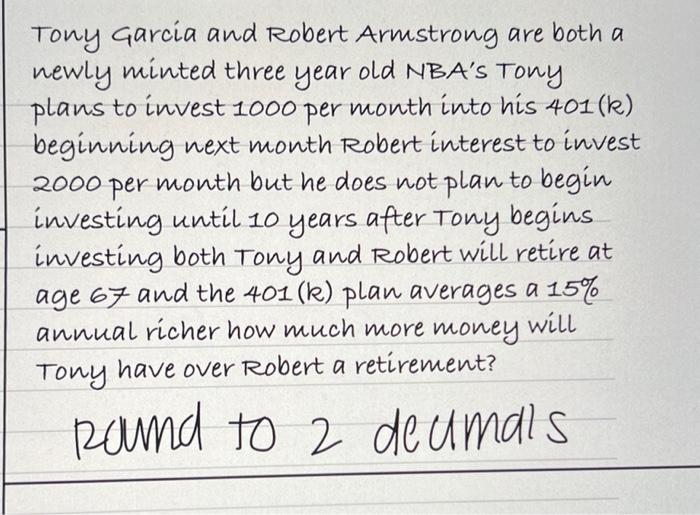 Tony Garcia and Robert Armstrong are both a
newly minted three year old NBA's Tony
plans to invest 1000 per month into his 401(k)
beginning next month Robert interest to invest
2000 per month but he does not plan to begin
investing until 10 years after Tony begins
investing both Tony and Robert will retire at
age 67 and the 401(k) plan averages a 15%
annual richer how much more money will
Tony have over Robert a retirement?
Round to 2 decimals